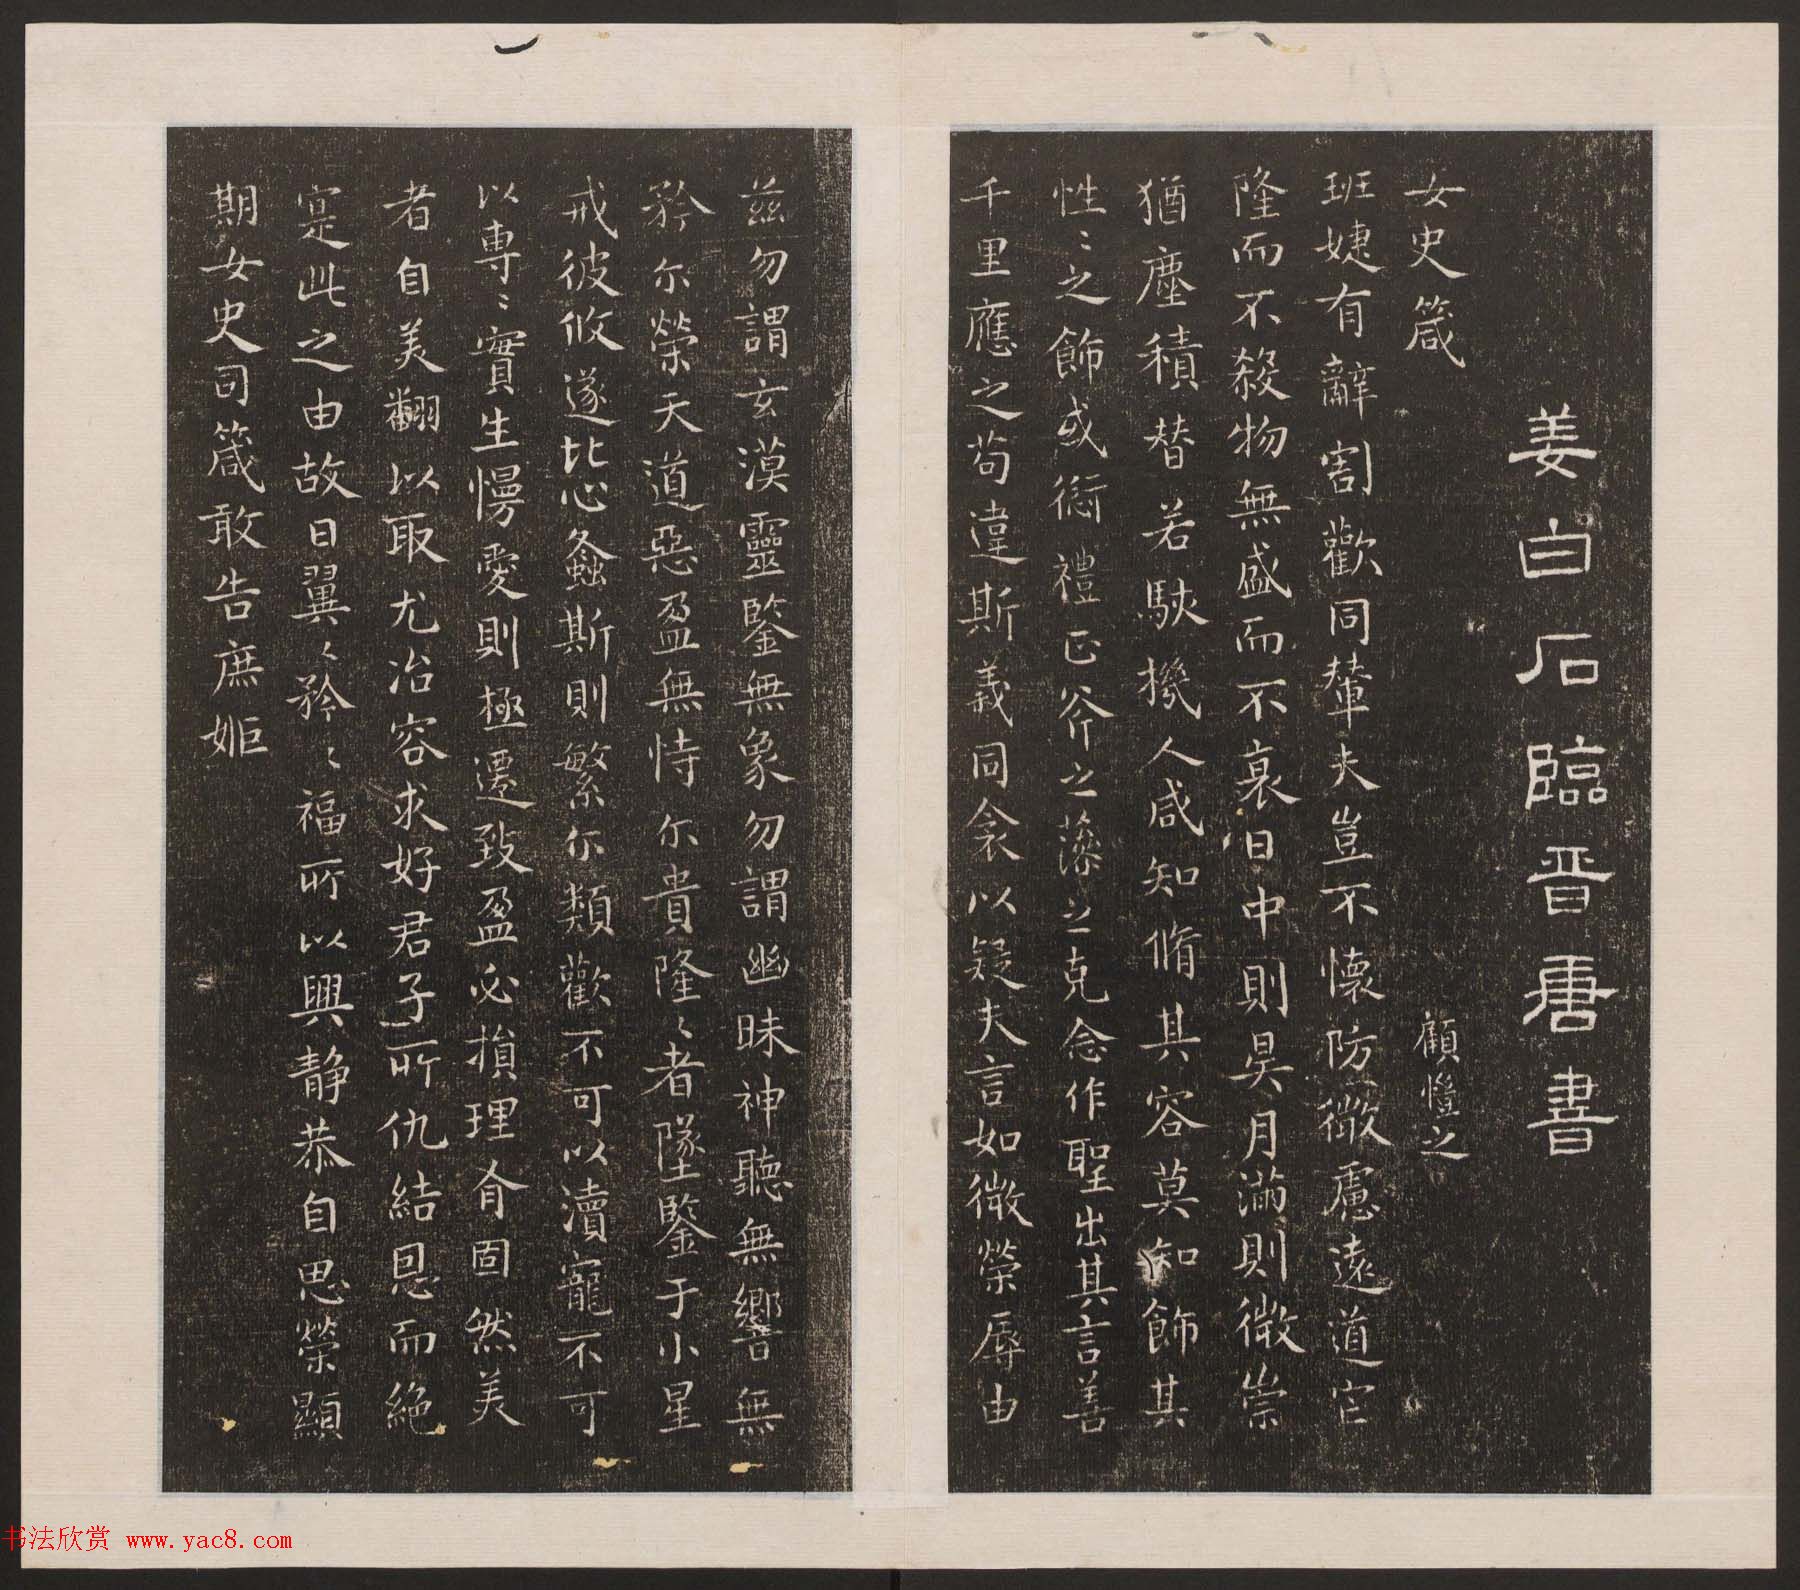 姜白石臨晋唐書
女史箴
顧愷之
班婕有辭割歡同輦夫豈不懷防微慮遠道它
隆而不殺物無盛而不衰日中則昃月滿則微崇
猶塵積替若駛機人咸知脩其容莫知飾其
性〻之飾或愆禮正斧之藻之克念作聖出其言善
千里應之苟違斯義同衾以疑夫言如微榮辱由
茲勿謂玄漠靈鑒無象勿謂幽昧神聽無響無
矜尒榮天道惡盈無恃尒貴隆〻者墜鑒于小星
戒彼攸遂比心螽斯則繁尒類歡不可以瀆寵不可
以専〻實生慢愛則極遷致盈必損理有固然美
者自美翻以取尤冶容求好君子所仇結恩而絶
寔此之由故曰翼〻矜〻福所以興静恭自思榮顯
期女史司箴敢告庶姬
书法欣赏 www.yac8.com